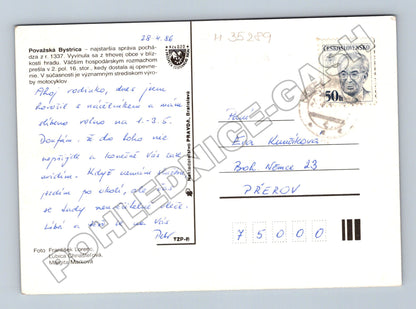 28.4.86
H 35289
Považská Bystrica – najstaršia správa pochá-
dza z r. 1337. Vyvinula sa z trhovej obce v blíz-
kosti hradu. Väčším hospodárskym rozmachom
prešla v 2. pol. 16. stor., kedy dostala aj opevne-
nie. V súčasnosti je významným strediskom výro-
by motocyklov
Ahoj rodinko, dnes jsem
hovořil s náčelníkem a mám
slíbeno volno na 1.-2.5.
Doufám, že do toho nic
nepřijde a konečně Vás zase
uvidím. Když nemám službu
jezdím po okolí, ale
se tady
Líbá a těší se na Vás
Petr
Foto: František Lorenc,
Ľubica Christoforová,
TZP-R
Nakladateľstvo PRAVDA, Bratislava
ČESKOSLOVENSKO
50h
Eva Kunčíková
Boh. Němce 23
PŘEROV
75000
POHLEDNICE-GASH